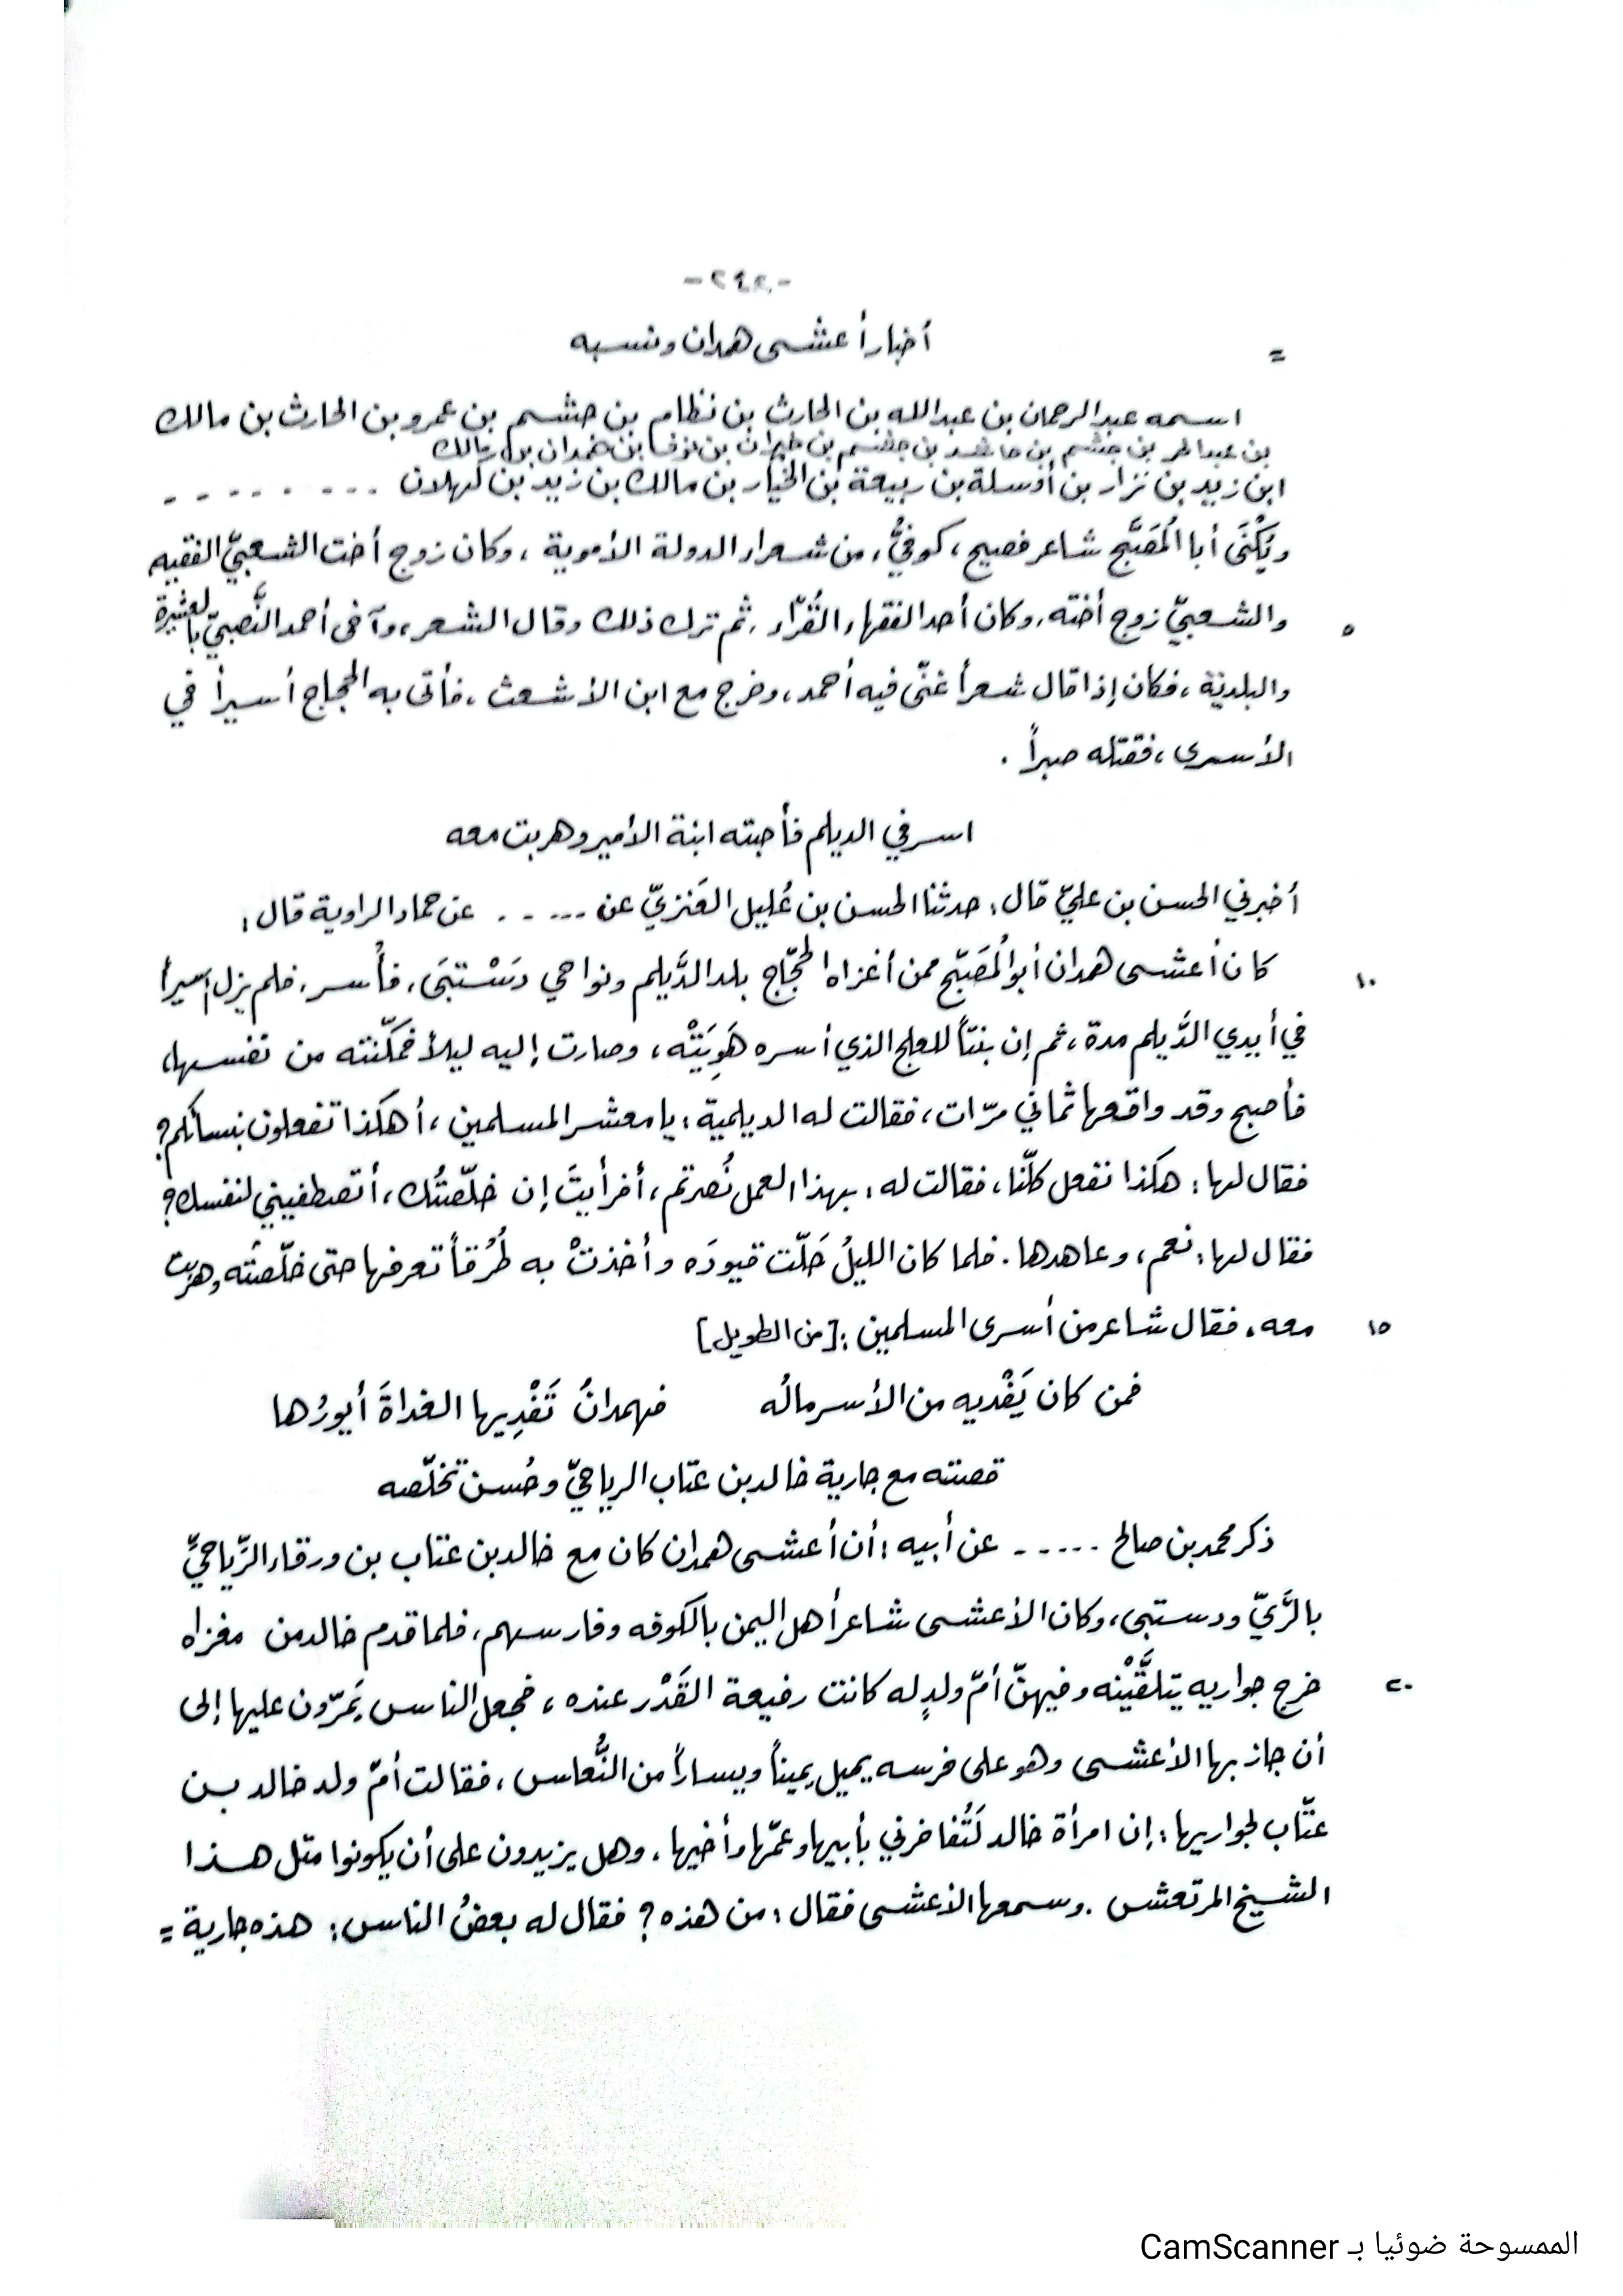 أخبار أعشى همدان ونسبه
=
اسمه عبد الرحمان بن عبد الله بن الحارث بن نظام بن جشم بن عمرو بن الحارث بن مالك
بن جشم بن حاشد بن جشم بن خيران بن نوف بن همدان بن مالك
ابن زيد بن نزار بن أوسلة بن ربيعة بن الخيار بن مالك بن زيد بن كهلان - - - - - - - - -
ويُكْنَى أبا المُصَبَّح شاعر فصيح، كوفيٌّ، من شعراء الدولة الأموية ، وكان زوج أخت الشعبيّ الفقيه
٥ والشعبيّ زوج أخته. وكان أحد الفقهاء القُرّاء ، ثم ترك ذلك وقال الشعر، وآخى أحمد النَّصبيّ بالعشيرة
والبلديّة ، فكان إذا قال شعراً غنّى فيه أحمد، وخرج مع ابن الأشعث ، فأتى به الحجاج أسيراً في
الأسرى ، فقتله صبراً .
اسر في الديلم فأحبته ابنة الأمير وهربت معه
أخبرني الحسن بن عليّ قال: حدثنا الحسن بن عُليل العَنَزيّ عن ----- عن حماد الراوية قال:
١٠ كان أعشى همدان أبو المُصَبّح ممن أغزاه الحجّاج بلد الدَّيلم ونواحي دَسْتبَى، فأُسر، فلم يزل أسيراً
في أيدي الدَّيلم مدة ، ثم إن بنتاً للعلج الذي أسره هَوِيَتْه ، وصارت إليه ليلاً فمكّنته من نفسها،
فأصبح وقد واقعها ثماني مرّات، فقالت له الديلمية: يا معشر المسلمين ، أهكذا تفعلون بنسائكم؟
فقال لها: هكذا نفعل كلّنا، فقالت له: بهذا العمل نُصرتم، أفرأيتَ إن خلّصتُك ، أتصطفيني لنفسك؟
فقال لها: نعم، وعاهدها. فلما كان الليلُ حَلّت قيودَه وأخذتْ به طُرُقاً تعرفها حتى خلّصته وهربت
١٥ معه، فقال شاعر من أسرى المسلمين: [من الطويل]
فمن كان يَفْديه من الأسر مالُه فهمدانُ تَفْدِيها الغداةَ أيورُها
قصته مع جارية خالد بن عتاب الرياحيّ وحُسن تخلّصه
ذكر محمد بن صالح ----- عن أبيه: أن أعشى همدان كان مع خالد بن عتاب بن ورقاء الرِّياحيِّ
بالرَّيّ ودستبى، وكان الأعشى شاعر أهل اليمن بالكوفه وفارسهم، فلما قدم خالد من مغزاه
٢٠ خرج جواريه يتلقَّيْنه وفيهنّ أمّ ولدٍ له كانت رفيعة القَدْر عنده ، فجعل الناس يَمرّون عليها إلى
أن جاز بها الأعشى وهو على فرسه يميل يميناً ويساراً من النُّعاس، فقالت أمّ ولد خالد بن
عتّاب لجواريها: إن امرأة خالد لَتُفاخرني بأبيها وعمّها وأخيها، وهل يزيدون على أن يكونوا مثل هذا
الشيخ المرتعش. وسمعها الأعشى فقال: من هذه؟ فقال له بعضُ الناس: هذه جارية =
الممسوحة ضوئيا بـ CamScanner